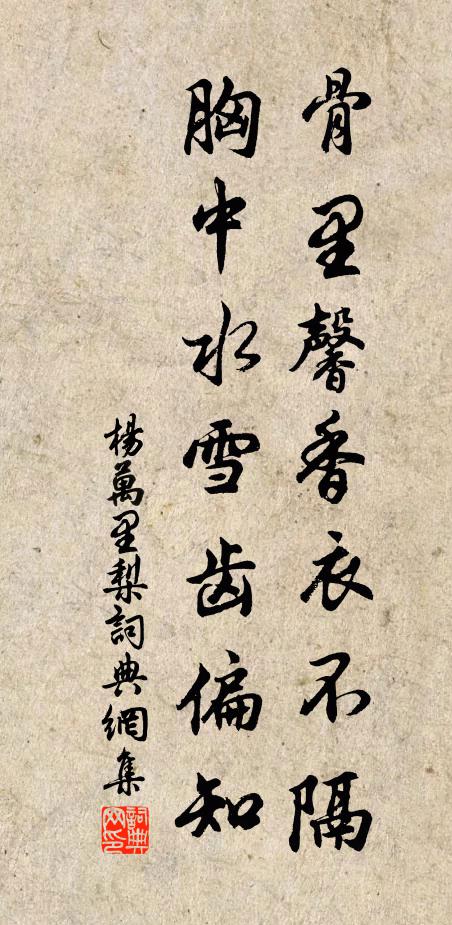 骨里馨香衣不隔
胸中水雪齿偏知
楊萬里梨詞典網集
詞典網印